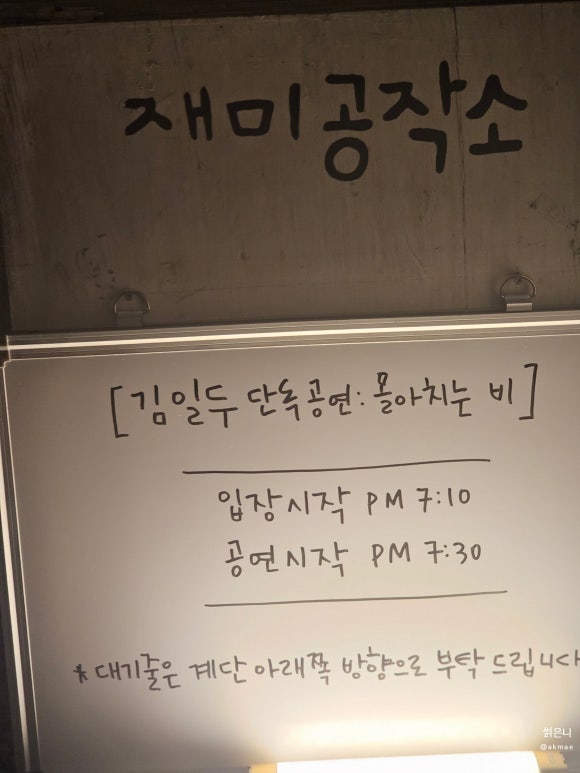 재미공작소
[김일두 단독공연: 몰아치는 비]
입장시작 PM 7:10
공연시작 PM 7:30
* 대기줄은 계단 아래쪽 방향으로 부탁 드립니다
썱은니
@akmae